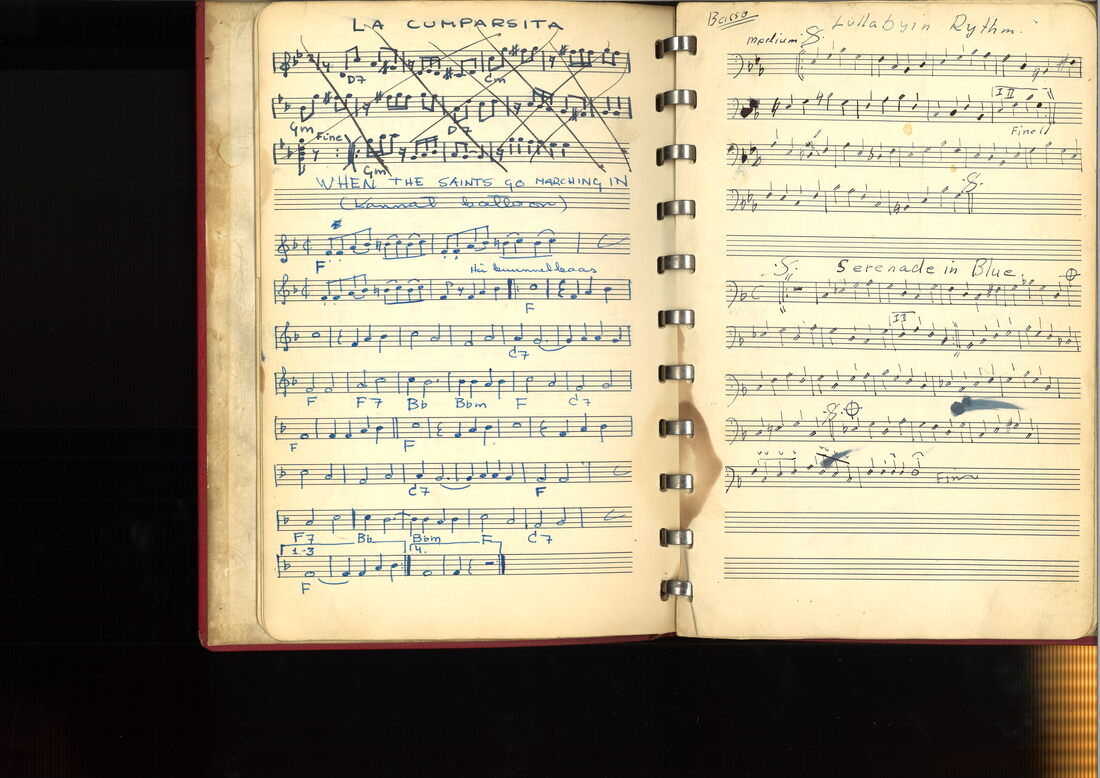 LA CUMPARSITA
D7 Cm
Gm D7
Fine
Gm
WHEN THE SAINTS GO MARCHING IN
(Kannal balloon)
F
F
F C7
F F7 Bb Bbm F C7
F F
C7 F
F7 Bb Bbm F C7
1.-3 4.
F
Basso Lullaby in Rythm.
medium
II
Fine
Serenade in Blue.
C
II
Fine